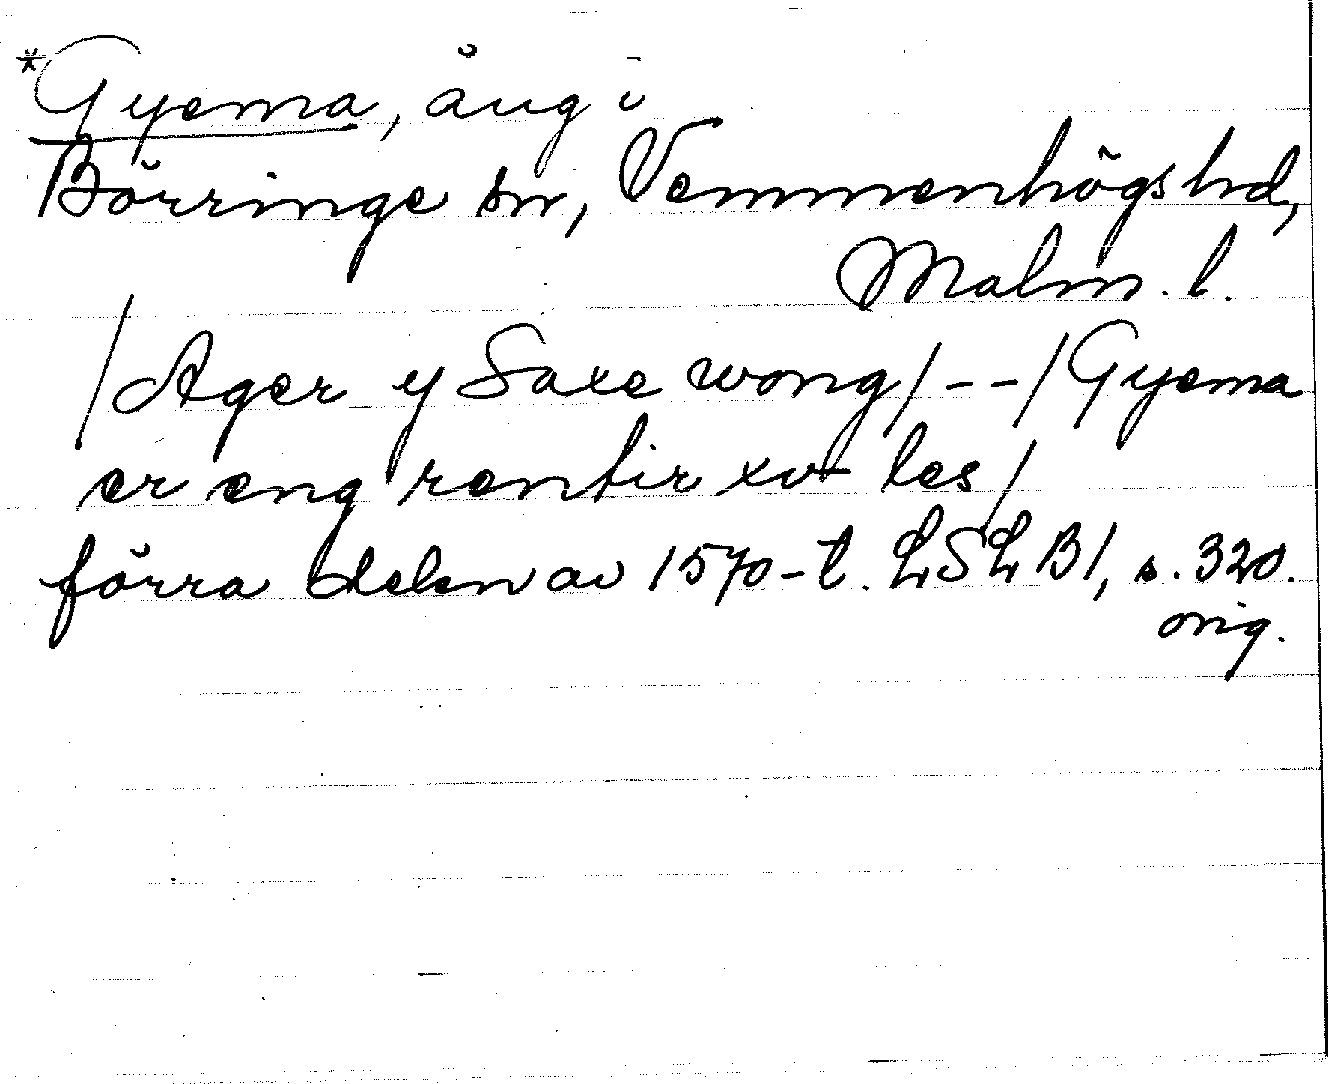 *Gyema, äng i
Börringe sn, Vemmenhögs hd,
Malm. l.
/Ager y Saxe wong/--/Gyema
er eng rentir xv les/
förra delen av 1570-t. LSL B1, s. 320.
orig.